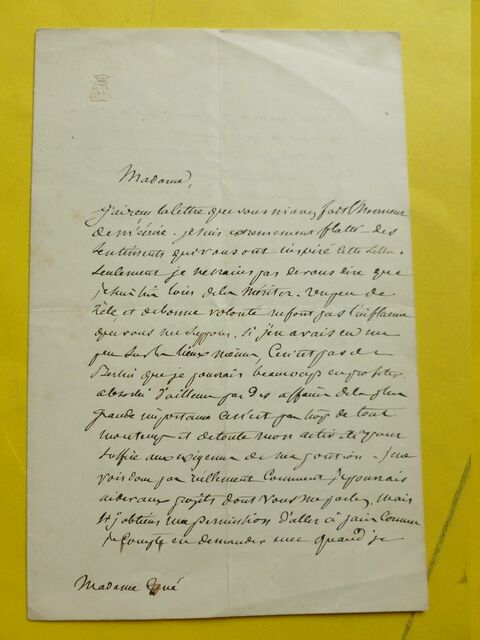 Madame,
J'ai reçu la lettre que vous m'avez fait l'honneur
de m'écrire. Je suis extremement flatté des
sentiments qui vous ont inspiré cette lettre.
Seulement je ne crains pas de vous dire que
je suis loin de la mériter. Un peu de
zèle et de bonne volonté ne font pas l'influence
que vous me supposez. Si j'en avais eu un
peu sur les lieux mêmes, ce n'est pas de
Berlin que je pourrais beaucoup en profiter.
absorbé d'ailleurs par des affaires de la plus
grande importance ce n'est pas trop de tout
mon temps et de toute mon activité pour
suffire aux exigences de ma position. Je ne
vois donc pas réellement comment je pourrais
aider aux projets dont vous me parlez, mais
si j'obtiens ma permission d'aller à
je compte en demander une quand je
Madame